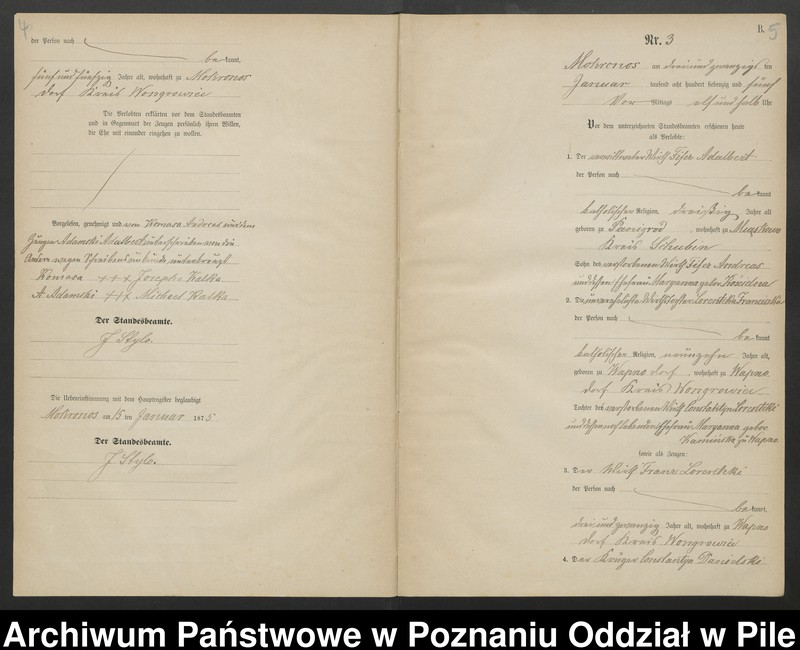 4
der Person nach
be kannt,
fünf und fünfzig Jahre alt, wohnhaft zu Mokronos
dorf Kreis Wongrowiec
Die Verlobten erklärten vor dem Standesbeamten
und in Gegenwart der Zeugen persönlich ihren Willen,
die Ehe mit einander eingehen zu wollen.
Vorgelesen, genehmigt und von Komasa Andreas und dem
Zeugen Adamski Adalbert unterschrieben von den
Andern wegen Schreibensunkunde unterkreuzt
Komasa +++ Josepha Walka
A. Adamski +++ Michael Walka
Der Standesbeamte.
J Stylo.
Die Uebereinstimmung mit dem Hauptregister beglaubigt
Mokronos am 15 ten Januar 1875
Der Standesbeamte.
J Stylo.
B. 5
Nr. 3
Mokronos am drei und zwanzigs ten
Januar tausend acht hundert siebenzig und fünf
Vor Mittags elf und halb Uhr
Vor dem unterzeichneten Standesbeamten erschienen heute
als Verlobte:
1. Der verwittweter Wirth Fifer Adalbert
der Person nach
be kannt
katholischer Religion, dreißig Jahre alt
geboren zu Panigrod, wohnhaft zu
Kreis Schubin
Sohn des verstorbenen Wirth Fifer Andreas
und dessen Ehefrau Maryanna gebor
2. Die unverehelichte Wirthstochter Franciszka
der Person nach
be kannt
katholischen Religion, neunzehn Jahre alt,
geboren zu Wapno dorf, wohnhaft zu Wapno
dorf Kreis Wongrowiec
Tochter des verstorbenen Wirth Constantyn
und dessen Ehefrau Maryanna gebor
Kaminska zu Wapno
sowie als Zeugen:
3. Der Wirth Franz
der Person nach
be kannt,
drei und zwanzig Jahre alt, wohnhaft zu Wapno
dorf Kreis Wongrowiec
4. Der Krüger Constantyn Danielski
Archiwum Państwowe w Poznaniu Oddział w Pile